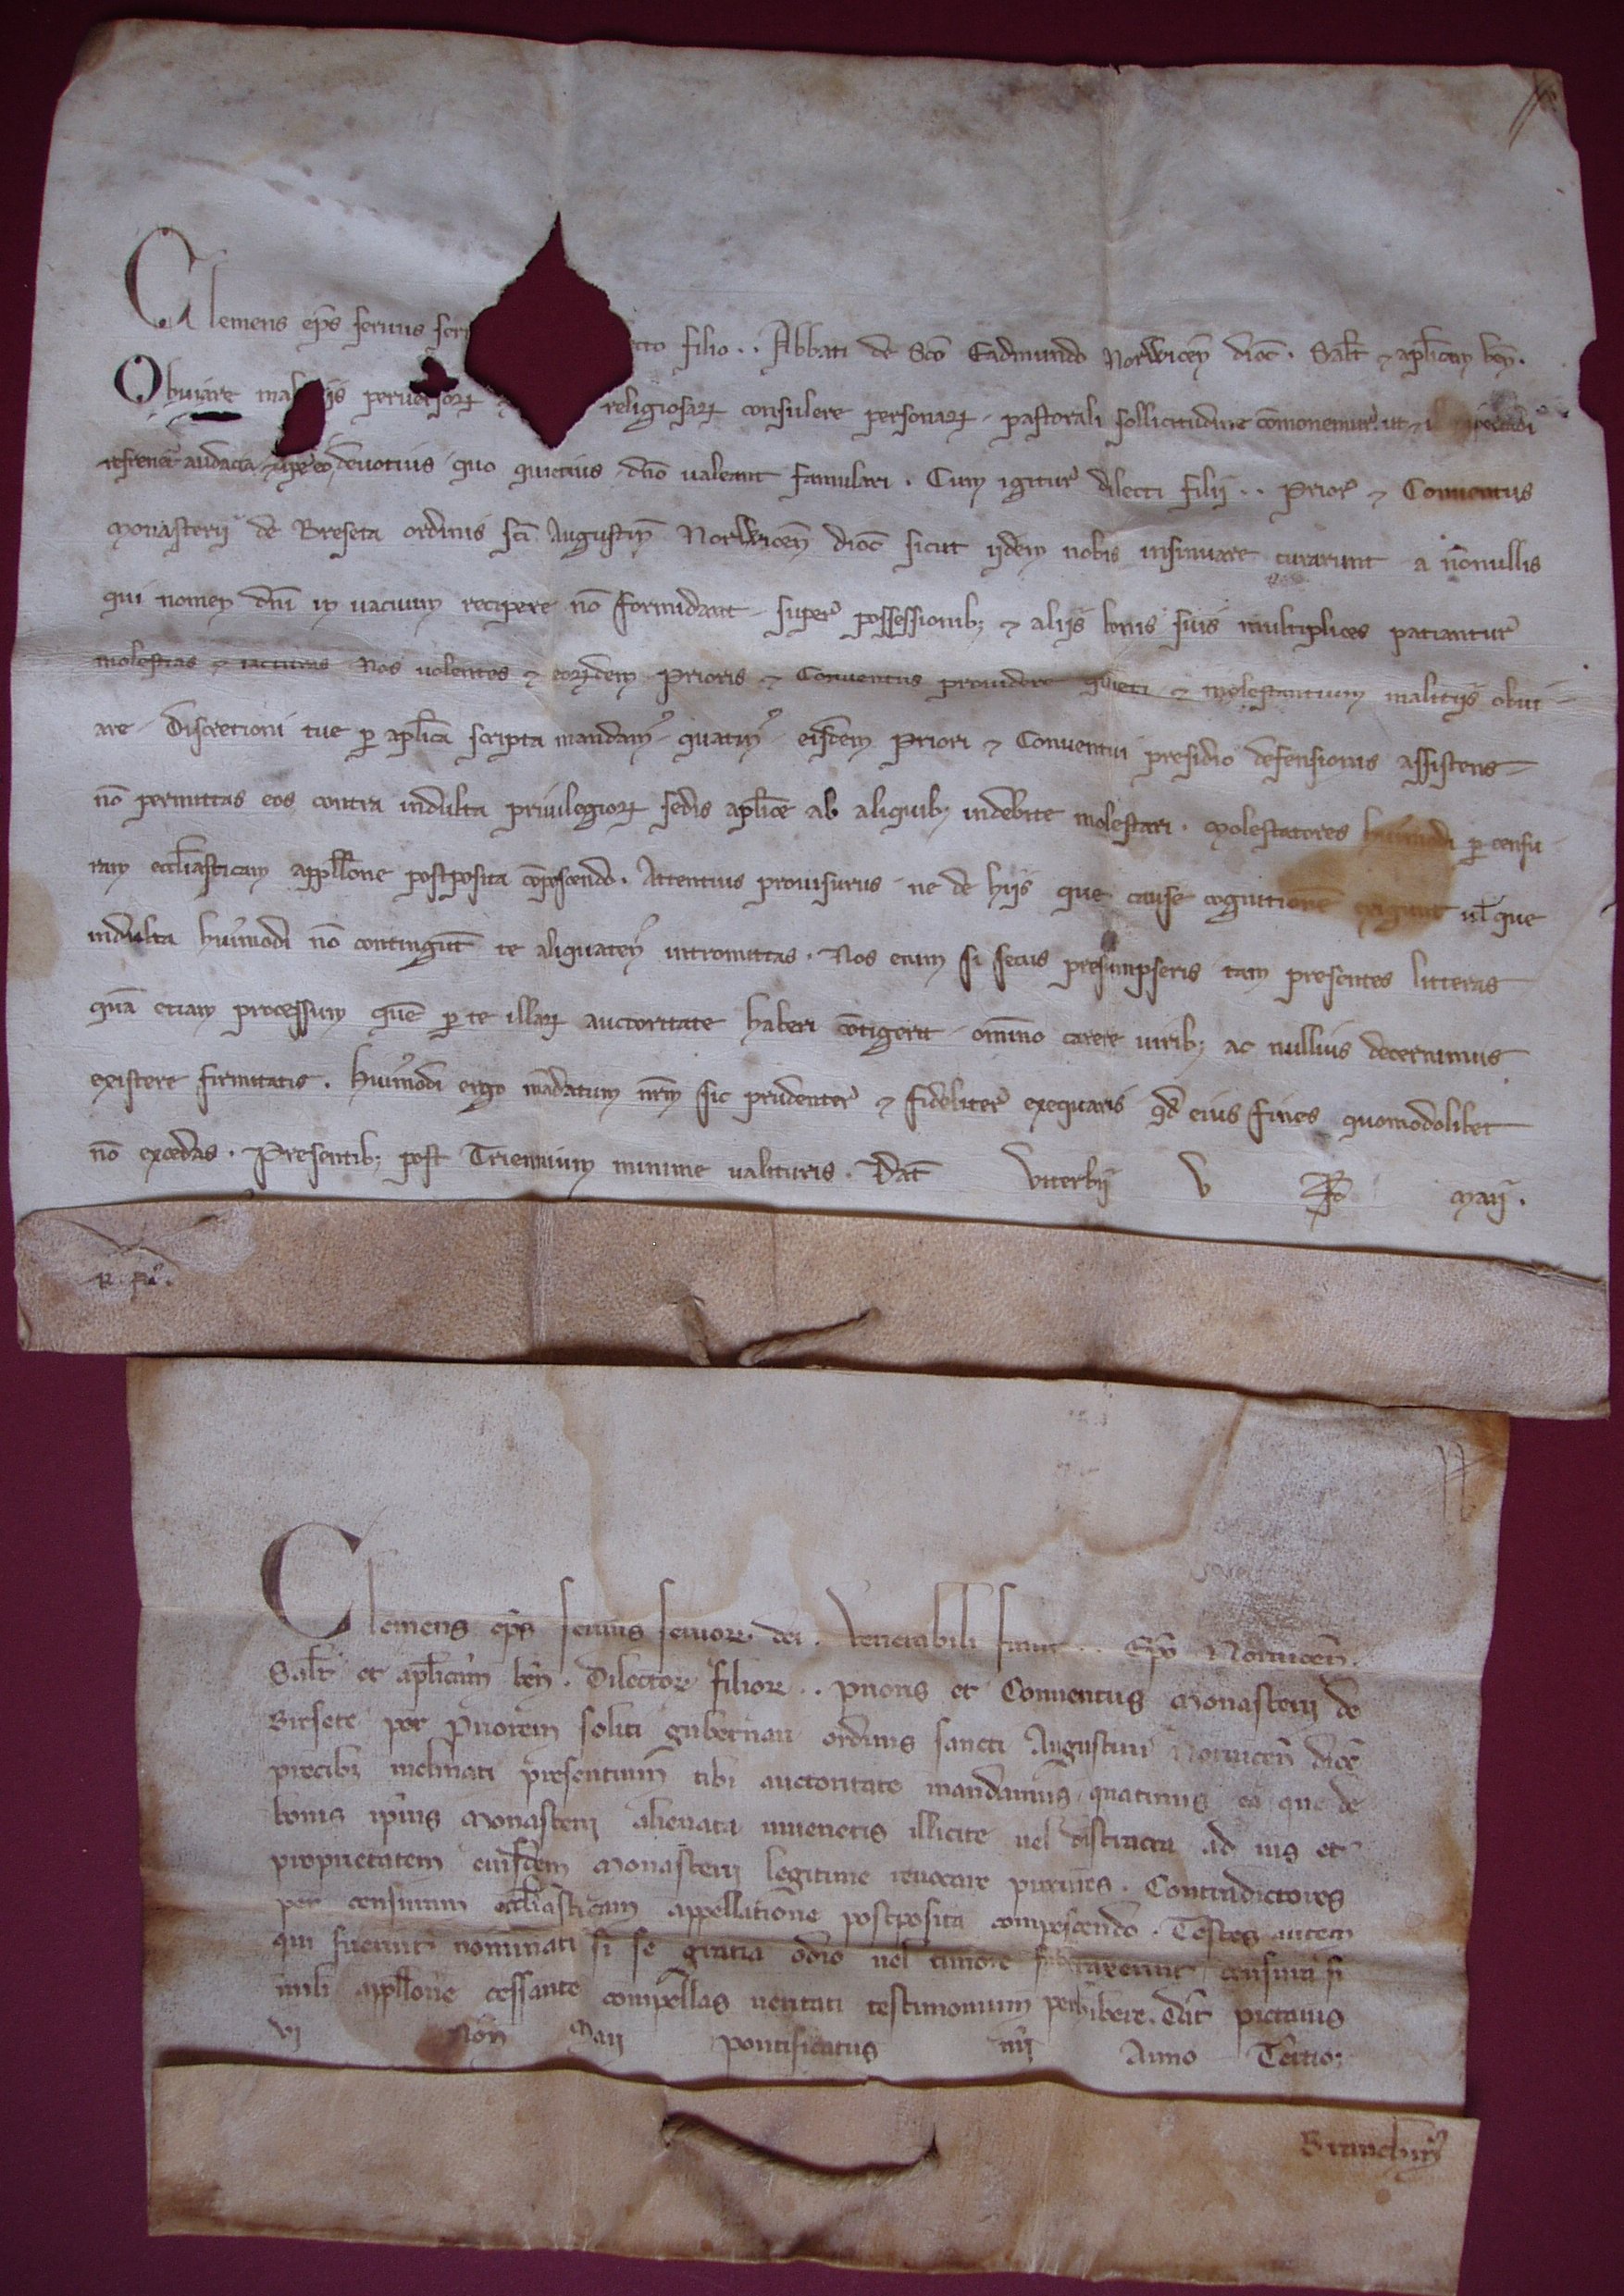 Clemens ep̄s seruus seru cto filio . . Abbati de Sc̄o Eadmundo Norwiceñ dioc̄ . Sal̄t ⁊ apl̄icam beñ .
Obuiare ma ijs peruersorꝝ religiosarꝝ consulere personarꝝ pastorali sollicitudine com̄onemur ut ⁊ il
refrenet᷑ audacia ⁊ ip̄e eo deuotius quo quietius dn̄o ualeant famulari . Cum igitur dilecti filij . . Prior ⁊ Conuentus
Monasterij de Breseta ordinis sc̄i Augustiñ Norwiceñ dioc̄ sicut ijdem nobis insinuare curarunt a no̅nullis
qui nomen dn̄i in vacuum recipere no̅ formidant super possessionibꝫ ⁊ alijs bonis suis multiplices patiantur
molestias ⁊ iacturas Nos uolentes ⁊ eorundem Prioris ⁊ Conuentus prouidere quieti ⁊ molestantium malitijs obui
are discretioni tue ꝑ apl̄ica scripta mandamꝰ quatinꝰ eisdem Priori ⁊ Conuentui presidio defensionis assistens
no̅ permittas eos contra indulta priuilegiorꝝ sedis apl̄ice ab aliquibꝫ indebite molestari . Molestatores hui᷑modi ꝑ censu
ram eccl̄iasticam appell̄one postposita co̅pescendo . Attentius prouisurus ne de hijs que cause cognitione̅ exigunt ul̄ que
indulta hui᷑modi no̅ contingūt te aliquatenꝰ intromittas . Nos enim si secus presumpseris tam presentes litteras
qua̅ etiam processum que̅ ꝑ te illarꝝ auctoritate haberi co̅tigerit omi̅no carere uiribꝫ ac nullius decernimus
existere firmitatis . Hui᷑modi ergo ma̅datum nr̄m sic prudenter ⁊ fideliter exequaris qd̄ eius fines quomodolibet
no̅ excedas . Presentibꝫ post Triennium minime ualituris . Dat̄ Viterbij V Maij .
Clemens ep̄s seruus seruorꝝ dei . Venerabili fratri . . Ep̄o Norwiceñ .
Sal̄t et apl̄icam beñ . Dilectorꝝ filiorꝝ . . Prioris et Conuentus Monasterij de
Birsete per Priorem soliti gubernari ordinis sancti Augustini Norwiceñ dioc̄
precibꝫ inclinati presentium tibi auctoritate mandamus quatinus ea que de
bonis ip̄ius Monasterij alienata inueneris illicite uel distracta ad ius et
proprietatem eiusdem Monasterij legitime reuocare procures . Contradictores
per censuram eccl̄iasticam appellatione postposita compescendo . Testes autem
qui fuerint nominati si se gratia odio uel timore subtraxerint censura si
mili appell̄one cessante compellas ueritati testimonium perhibere . Dat̄ Pictauis
vj Noñ Maij Pontificatus nr̄i Anno Tertio ;